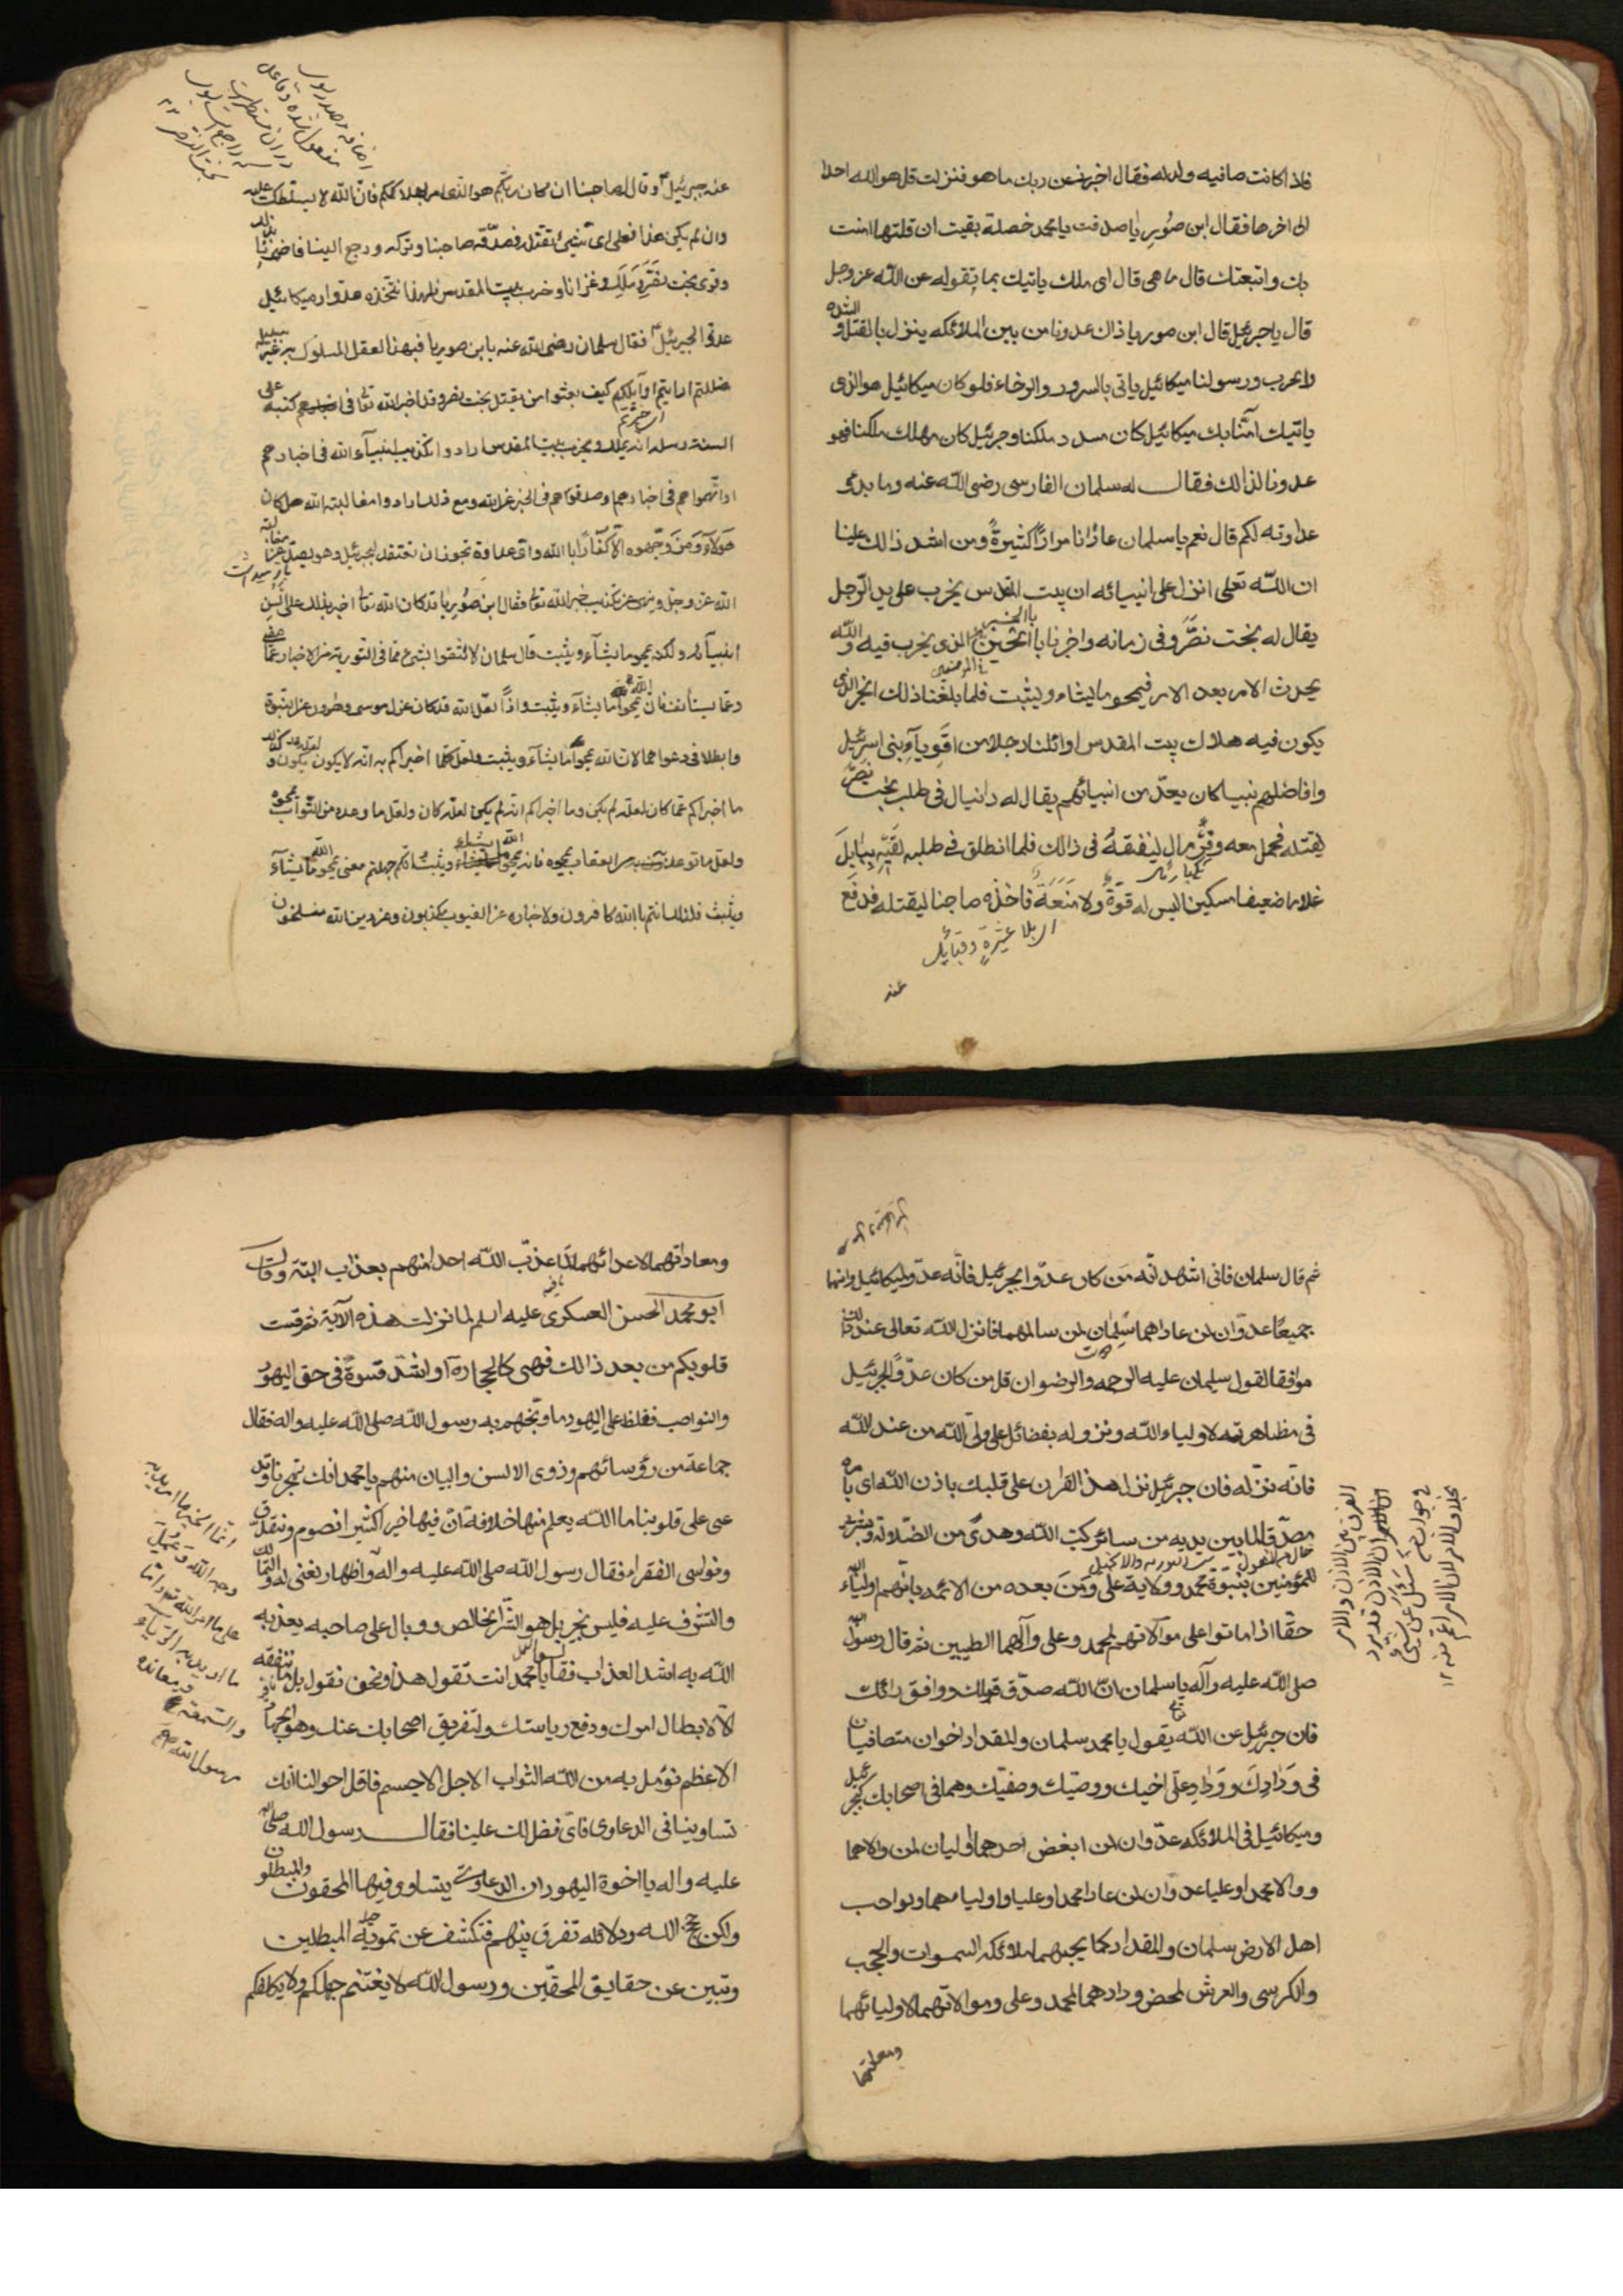 فلذا كانت صافيه ولدله فقال اخبرنى عن ربك ما هو فنزلت قل هو الله احد
الى اخرها فقال ابن صوريا صدقت يا محمد خصلة بقيت ان قلتها امنت
بك واتبعتك قال ما هى قال اى ملك ياتيك بما يقوله عن الله عز وجل
قال يا جبرئيل قال ابن صوريا ذاك عدونا من بين الملائكه ينزل بالقتل و الشده
والحرب ورسولنا ميكائيل ياتى بالسرور والرخاء فلو كان ميكائيل هو الذى
ياتيك امنا بك ميكائيل كان مسدد ملكنا وجبرئيل كان مهلك ملكنا فهو
عدونا لذالك فقال له سلمان الفارسى رضى الله عنه وما بدئ
عداوته لكم قال نعم يا سلمان عادانا مرارا كثيرة ومن اشد ذالك علينا
ان الله تعلى انزل على انبيائه ان بيت المقدس يخرب على يد الرجل
يقال له بخت نصر وفى زمانه واخرنا بالحين الذى يخرب فيه والله
يحدث الامر بعد الامر فيمحو ما يشاء ويثبت فلما بلغنا ذلك الخبر الذى
يكون فيه هلاك بيت المقدس اوائلنا رجلا من اقوياء بنى اسرئيل
وافاضلهم نبيا كان يعد من انبيائهم يقال له دانيال فى طلب بخت نصر
ليقتله فحمل معه وقر مال لينفقه فى ذالك فلما انطلق فى طلبه لقيه ببابل
غلاما ضعيفا مسكينا ليس له قوة ولا منعة فاخذه صاحبنا ليقتله فدفع
اى بلا عشيرة وقبائل
عنه
عنه جبرئيل وقال لصاحبنا ان كان ربكم هو الذى امر بهلاككم فان الله لا يسلطك عليه
وان لم يكن هذا فعلى اى شئ تقتله فصدقه صاحبنا وتركه ورجع الينا فاخبرنا بذلك
وقوى بخت نصر وملك وغزانا وخرب بيت المقدس فلهذا نتخذه عدوا وميكائيل
عدو لجبرئيل فقال سلمان رضى الله عنه يا بن صوريا فبهذا العقل المسلوك به غير سبيله
ضللتم ارايتم اوايلكم كيف بعثوا من يقتل بخت نصر وقد اخبر الله تعالى فى كتبه على
السنة رسله انه يملك ويخرب بيت المقدس ارادوا تكذيب انبياء الله فى اخبارهم
او اتهموهم فى اخبارهم وصدقوهم فى الخبر عن الله ومع ذلك ارادوا مغالبة الله هل كان
هولاء ومن وجهوه الا كفارا بالله واى عداوة تجوز ان تعتقد لجبرئيل وهو يصد عن مغالبة
الله عز وجل وينهى عن تكذيب خبر الله تعالى فقال ابن صوريا قد كان الله تعالى اخبر بذلك على السن
انبيائه ولكنه يمحو ما يشاء ويثبت قال سلمان لا تثقوا بشئ مما فى التورية من الاخبار عما مضى
وعما يستأنف فان الله يمحو ما يشاء ويثبت واذا لعل الله قد كان عزل موسى وهارون عن النبوة
وابطلا فى دعواهما لان الله يمحو ما يشاء ويثبت ولعل كلما اخبراكم به انه لا يكون يكون و
ما اخبراكم عما كان لعله لم يكن وما اخبراكم انه لم يكن لعله كان ولعل ما وعده من الثواب يمحوه
ولعل ما توعد به من العقاب يمحوه فانه يمحو الله ما يشاء ويثبت انكم جهلتم معنى يمحو الله ما يشاء
ويثبت فلذلك انتم بالله كافرون ولاخباره عن الغيوب مكذبون وعن دين الله منسلخون
ثم قال سلمان فانى اشهد انه من كان عدوا لجبرئيل فانه عدو لميكائيل وانهما
جميعا عدوان لمن عاداهما سلمان لمن سالمهما فانزل الله تعالى عند ذلك
موافقا لقول سلمان عليه الرحمه والرضوان قل من كان عدوا لجبرئيل
فى مظاهرته لاولياء الله ونزوله بفضائل على ولى الله من عند الله
فانه نزله فان جبرئيل نزل هذا القران على قلبك باذن الله اى بامره
مصدقا لما بين يديه من سائر كتب الله وهدى من الضلالة وبشرى
للمؤمنين بنبوة محمد وولاية على ومن بعده من الائمه بانهم اولياء الله
حقا اذا ماتوا على موالاتهم لمحمد وعلى وآلهما الطيبين ثم قال رسول الله
صلى الله عليه وآله يا سلمان ان الله صدق قولك ووافق رائك
فان جبرئيل عن الله يقول يا محمد سلمان والمقداد اخوان متصافيان
فى ودادك ووداد على اخيك ووصيك وصفيك وهما فى اصحابك كجبرئيل
وميكائيل فى الملائكه عدوان لمن ابغض احدهما وليان لمن والاهما
ووالا محمدا وعليا عدوان لمن عادا محمدا وعليا واوليائهما ولو احب
اهل الارض سلمان والمقداد كما يحبهما ملائكة السموات والحجب
والكرسى والعرش لمحض ودادهما لمحمد وعلى وموالاتهما لاوليائهما
ومعاداتهما
الفرق بين الاذن والامر
ومعاداتهما لاعدائهما لما عذب الله احدا منهم بعذاب البتة وقال
ابو محمد الحسن العسكرى عليه السلم لما نزلت هذه الآية ثم قست
قلوبكم من بعد ذالك فهى كالحجارة او اشد قسوة فى حق اليهود
والنواصب فغلظ على اليهود ما وبخهم به رسول الله صلى الله عليه واله فقال
جماعة من رؤسائهم وذوى الالسن والبيان منهم يا محمد انك تهجونا وتد
عى على قلوبنا ما الله يعلم منها خلافه ان فيها خيرا كثيرا نصوم ونتصدق
ونواسى الفقراء فقال رسول الله صلى الله عليه واله
والتشرف عليه فليس بخير بل هو الشر الخالص ووبال على صاحبه يعذبه
الله به اشد العذاب فقالوا يا محمد انت تقول هذا ونحن نقول بل ما ننفقه
الا لابطال امرك ودفع رياستك ولتفريق اصحابك عنك وهو الجهاد
الاعظم نؤمل به من الله الثواب الاجل الاجسم فاقل احوالنا انك
تساوينا فى الدعاوى فاى فضل لك علينا فقال رسول الله صلى الله
عليه واله يا اخوة اليهود ان الدعاوى يتساوى فيها المحقون والمبطلون
ولكن حجج الله ودلائله تفرق بينهم فتكشف عن تمويه المبطلين
وتبين عن حقايق المحقين ورسول الله لا يغتنم جهلكم ولا يكلفكم
انما الخير ما اريد به
وجه الله وعمل
على ما امر الله تعالى واما
ما اريد به الرياء
والسمعة ومعاندة
رسول الله